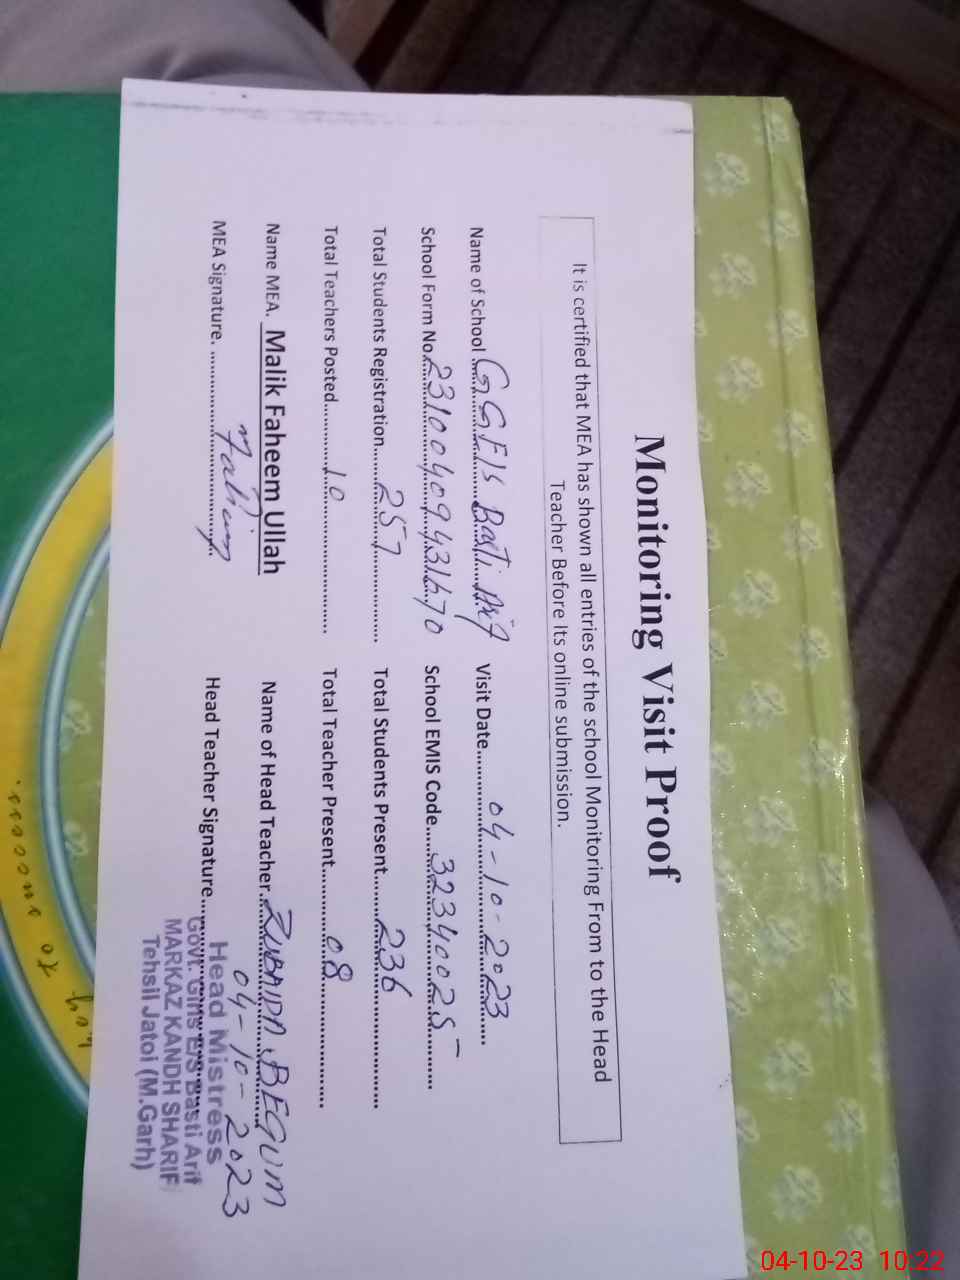 Monitoring Visit Proof
It is certified that MEA has shown all entries of the school Monitoring From to the Head
Teacher Before Its online submission.
Name of School GGE/S Basti Arif Visit Date 04-10-2023
School Form No School EMIS Code 32340025
Total Students Registration 257 Total Students Present 236
Total Teachers Posted 10 Total Teacher Present 08
Name MEA. Malik Faheem Ullah Name of Head Teacher ZUBAIDA BEGUM
MEA Signature. Faheem Head Teacher Signature 04-10-2023
Head Mistress
Govt. Girls E/S Basti Arif
MARKAZ KANDH SHARIF
Tehsil Jatoi (M.Garh)
04-10-23 10:22